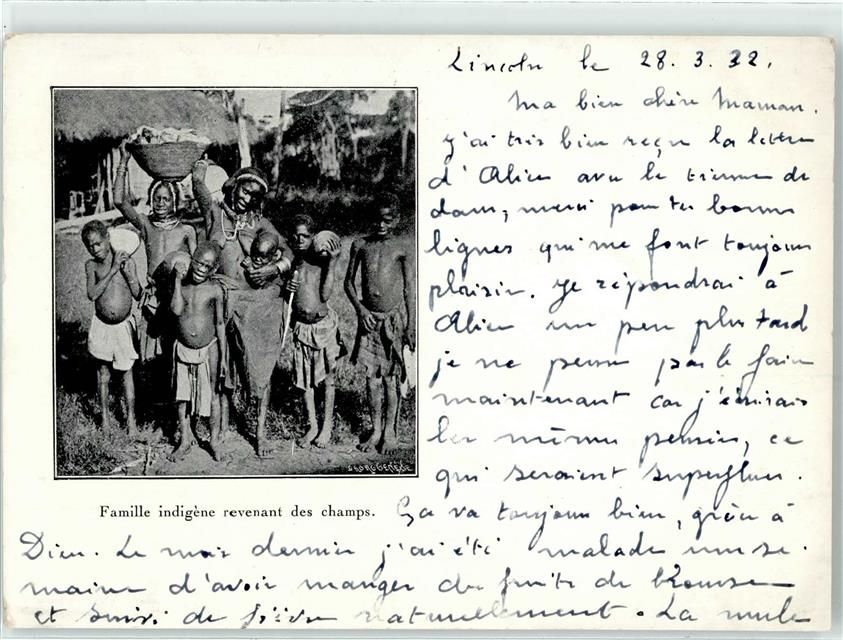 Lincoln le 28. 3. 32.
Ma bien chère Maman.
j'ai très bien reçu la lettre
d'Alice avec le tienne de
dans, merci pour tes bonnes
lignes qui me font toujours
plaisir. Je répondrai à
Alice un peu plus tard
je ne pense pas le faire
maintenant car j'écrirais
les mêmes pensées, ce
qui seraient superflues.
Famille indigène revenant des champs.
Ça va toujours bien, grâce à
Dieu. Le mois dernier j'ai été malade une se-
maine d'avoir manger des fruits de brousse
et suivi de fièvre naturellement. La mule